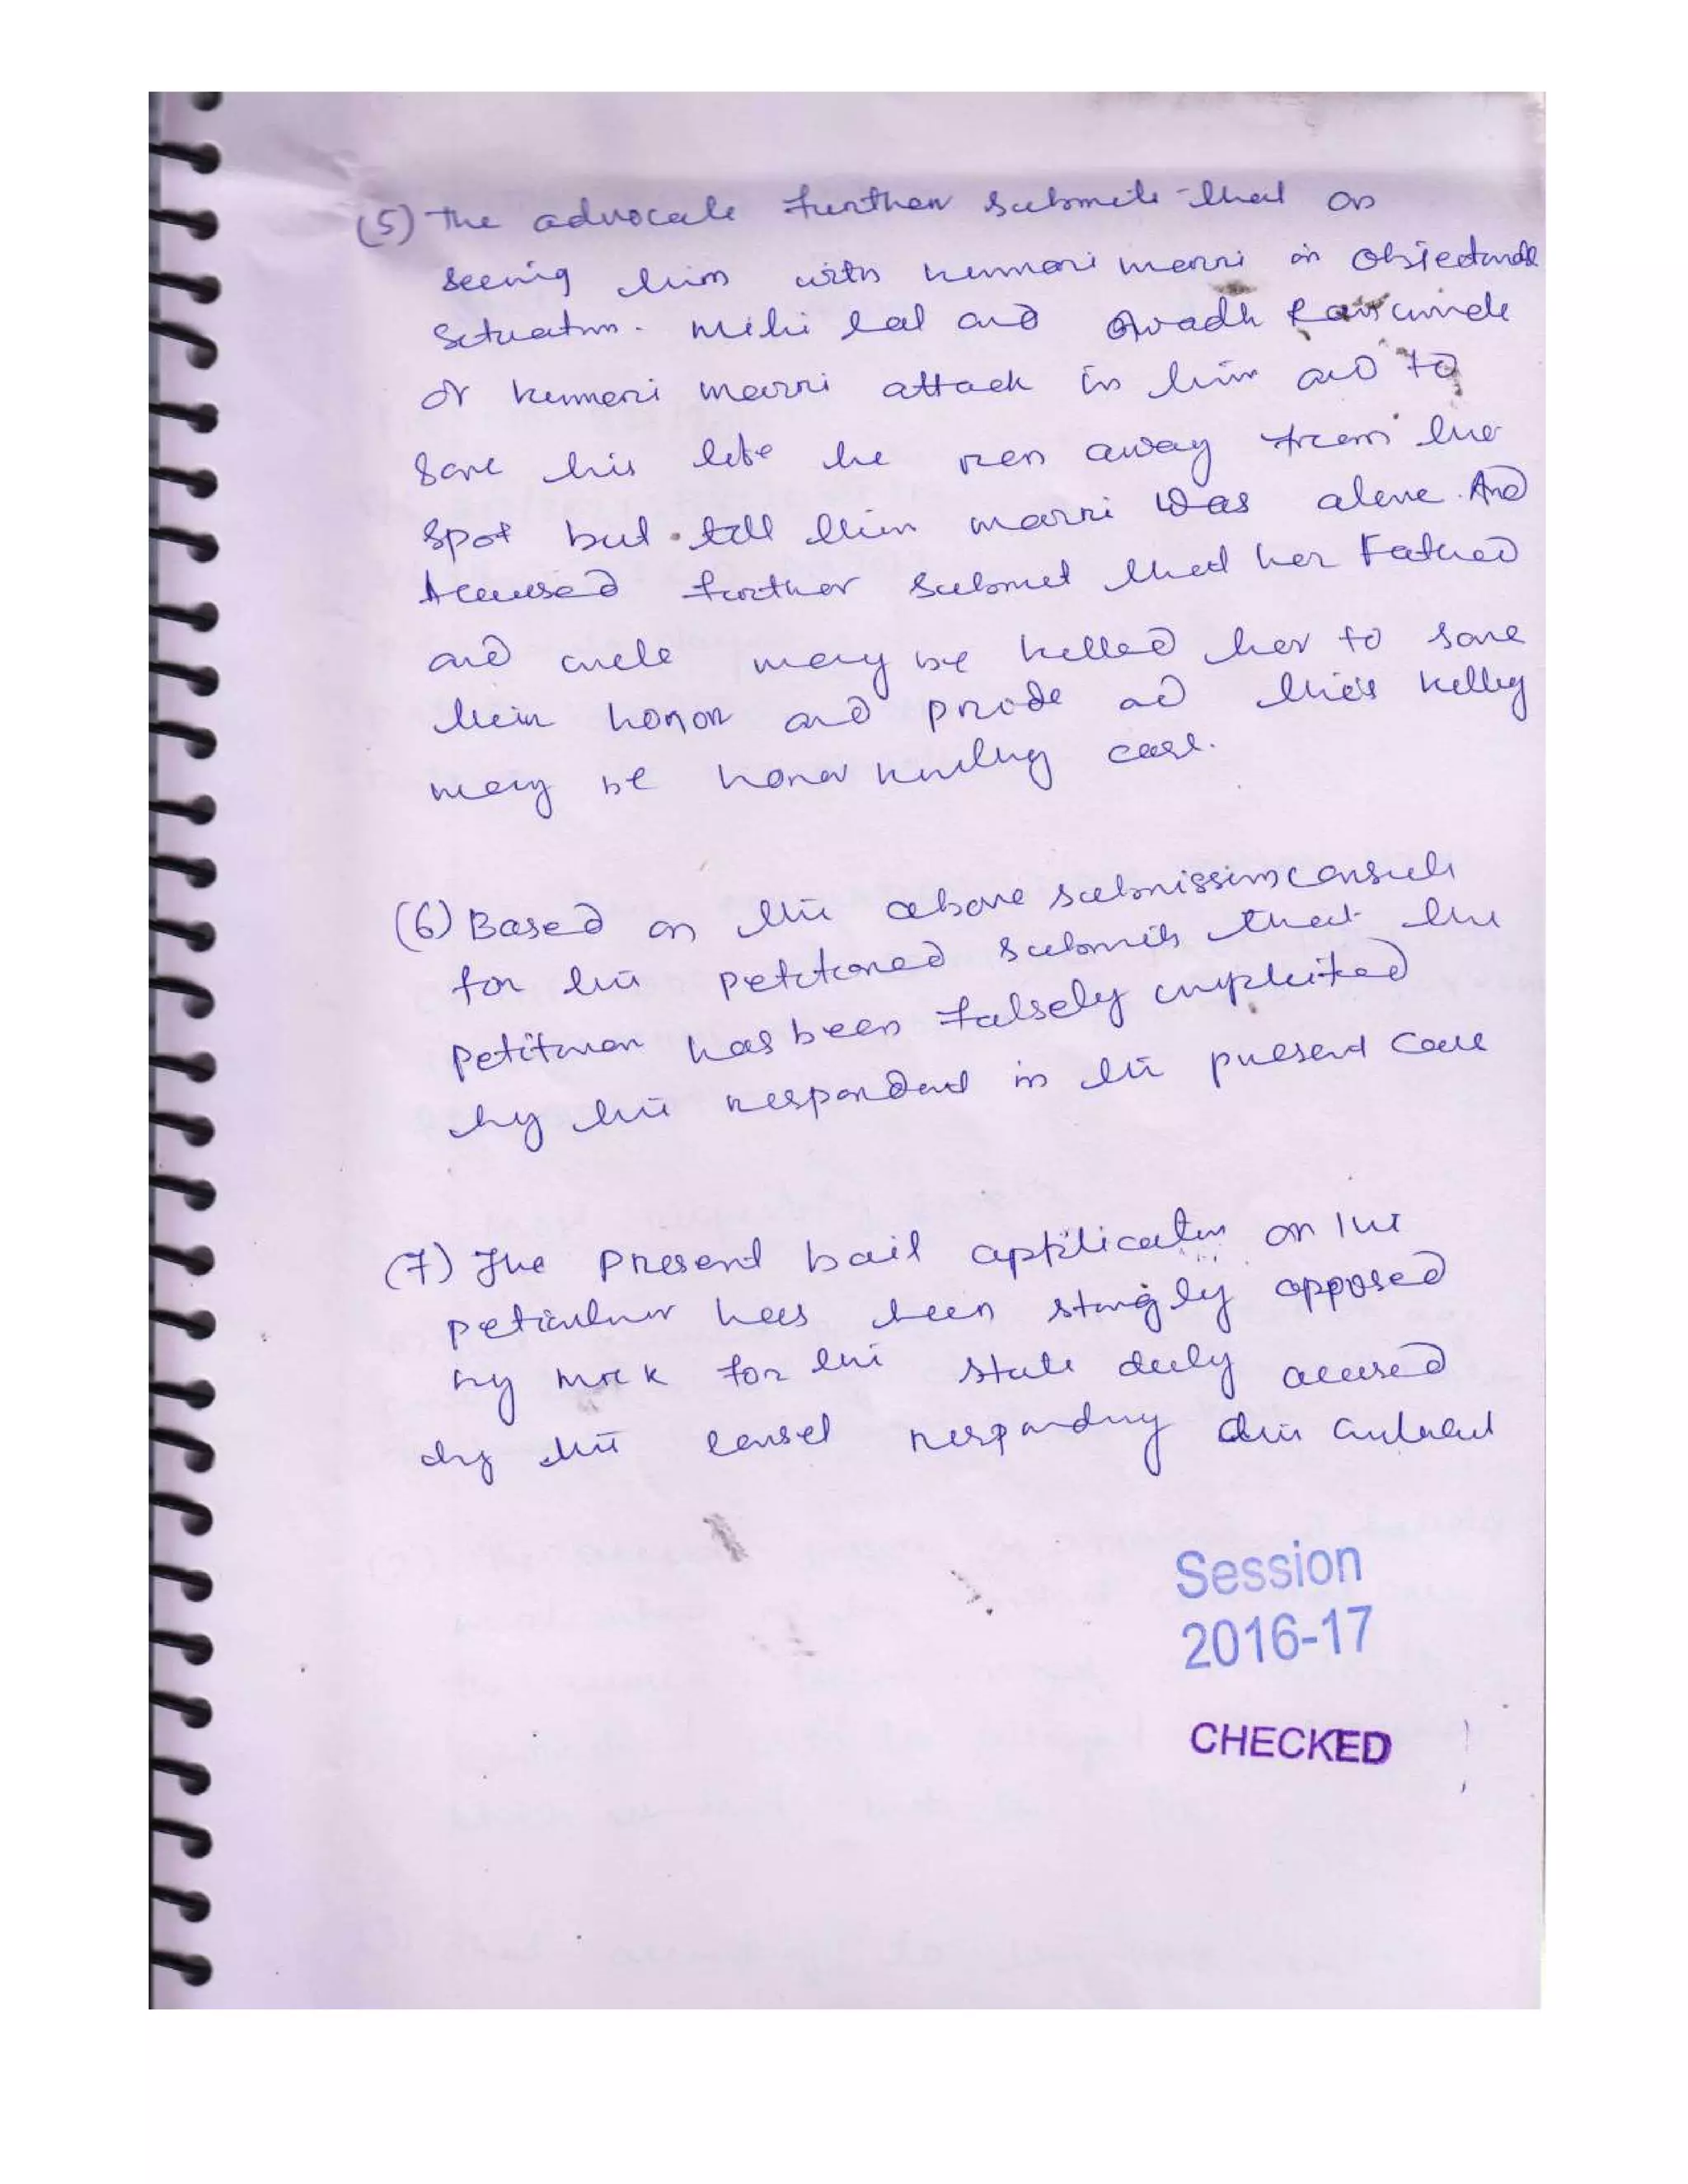 (5) The advocate further submits that on
seeing him with kumari marri in objectionable
situation. Mihi lal and Avadh Ram uncle
of kumari marri attack in him and to
save his life he ran away from the
spot but till then marri was alone. And
Accused further submit that her Father
and uncle may be killed her to save
their honor and pride ad this killing
may be honor killing case.
(6) Based on the above submission consul
for the petitioned submits that the
petitioner has been falsely implicited
by the respondent in the present case
(7) The present bail application on the
petitioner has been strongly opposed
by for the state duly accused
by the consel responding
Session
2016-17
CHECKED